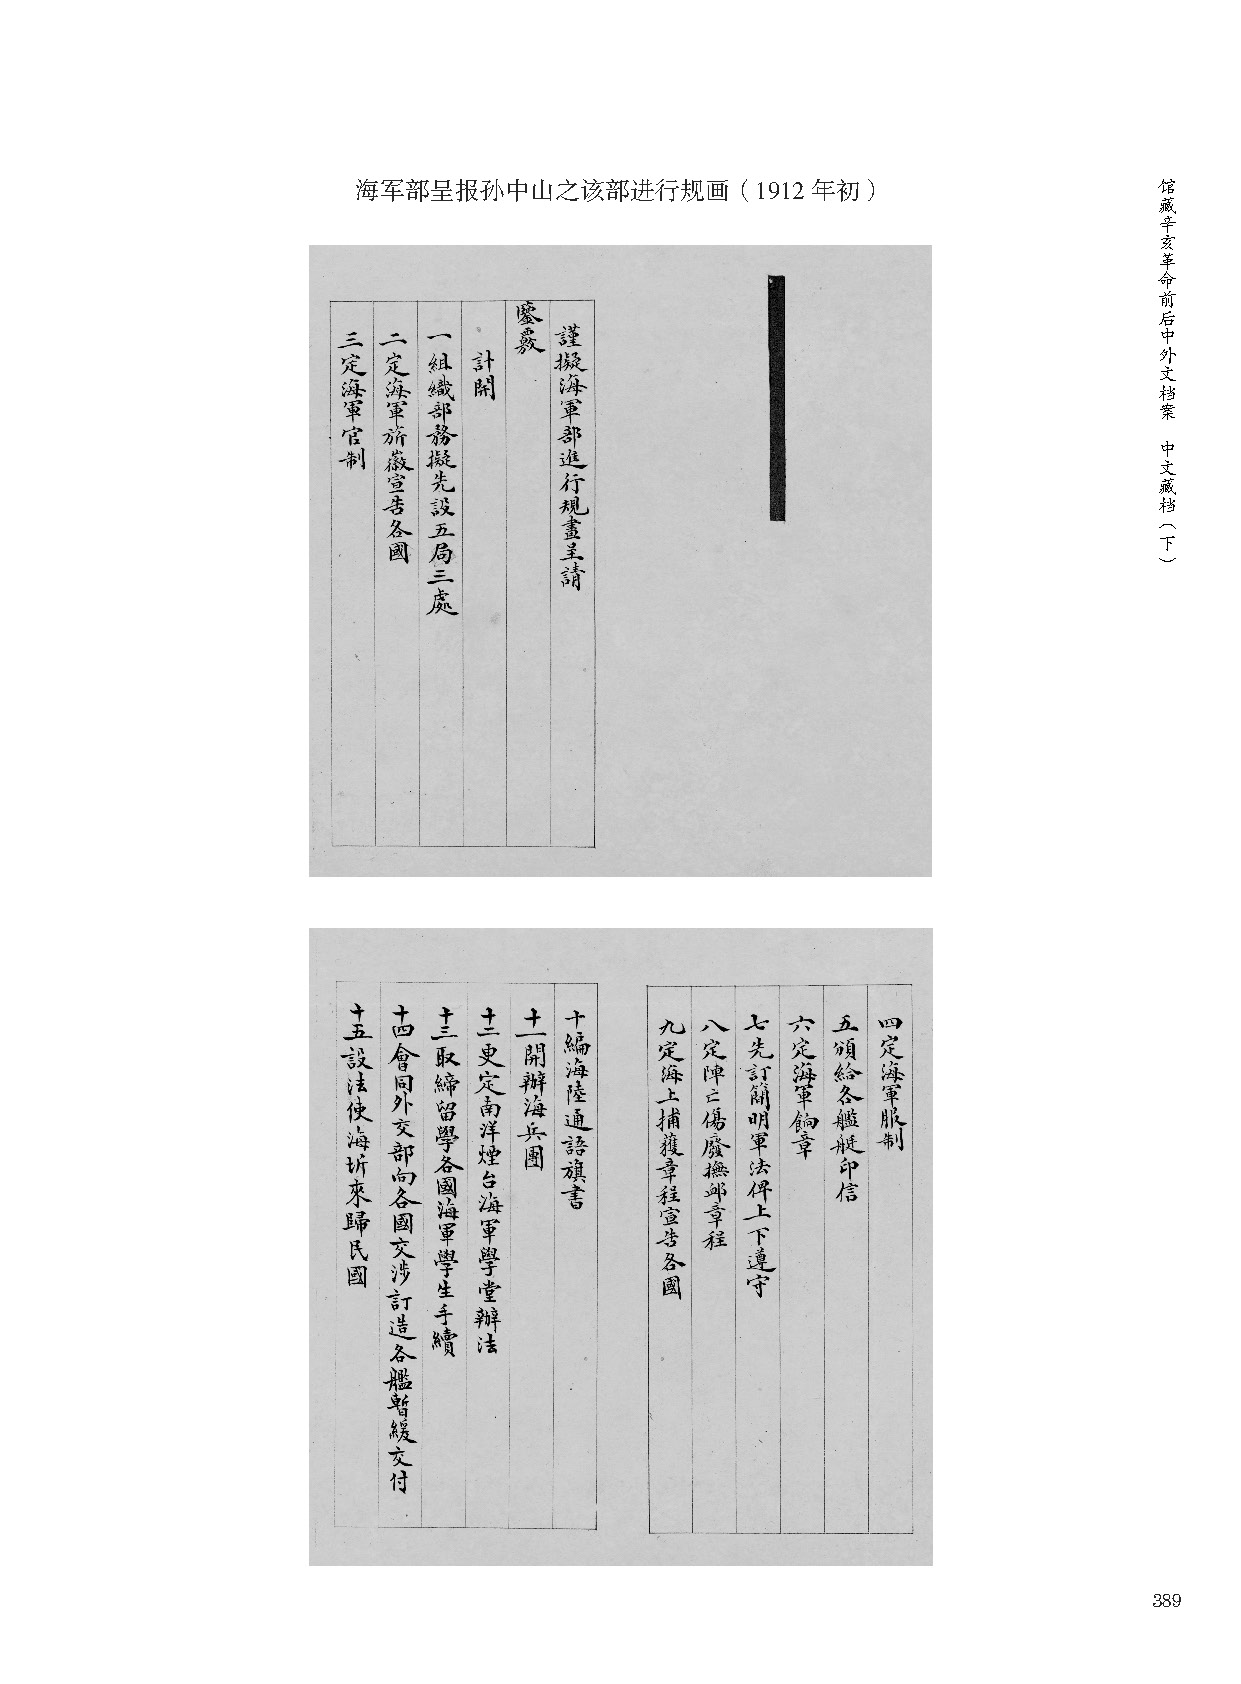 海军部呈报孙中山之该部进行规画（1912 年初）
馆藏辛亥革命前后中外文档案 中文藏档（下）
謹擬海軍部進行規畫呈請
鑒覈
計開
一組織部務擬先設五局三處
二定海軍旂徽宣告各國
三定海軍官制
四定海軍服制
五頒給各艦艇印信
六定海軍餉章
七先訂簡明軍法俾上下遵守
八定陣亡傷廢撫卹章程
九定海上捕獲章程宣告各國
十編海陸通語旗書
十一開辦海兵團
十二更定南洋煙台海軍學堂辦法
十三取締留學各國海軍學生手續
十四會同外交部向各國交涉訂造各艦暫緩交付
十五設法使海圻來歸民國
389